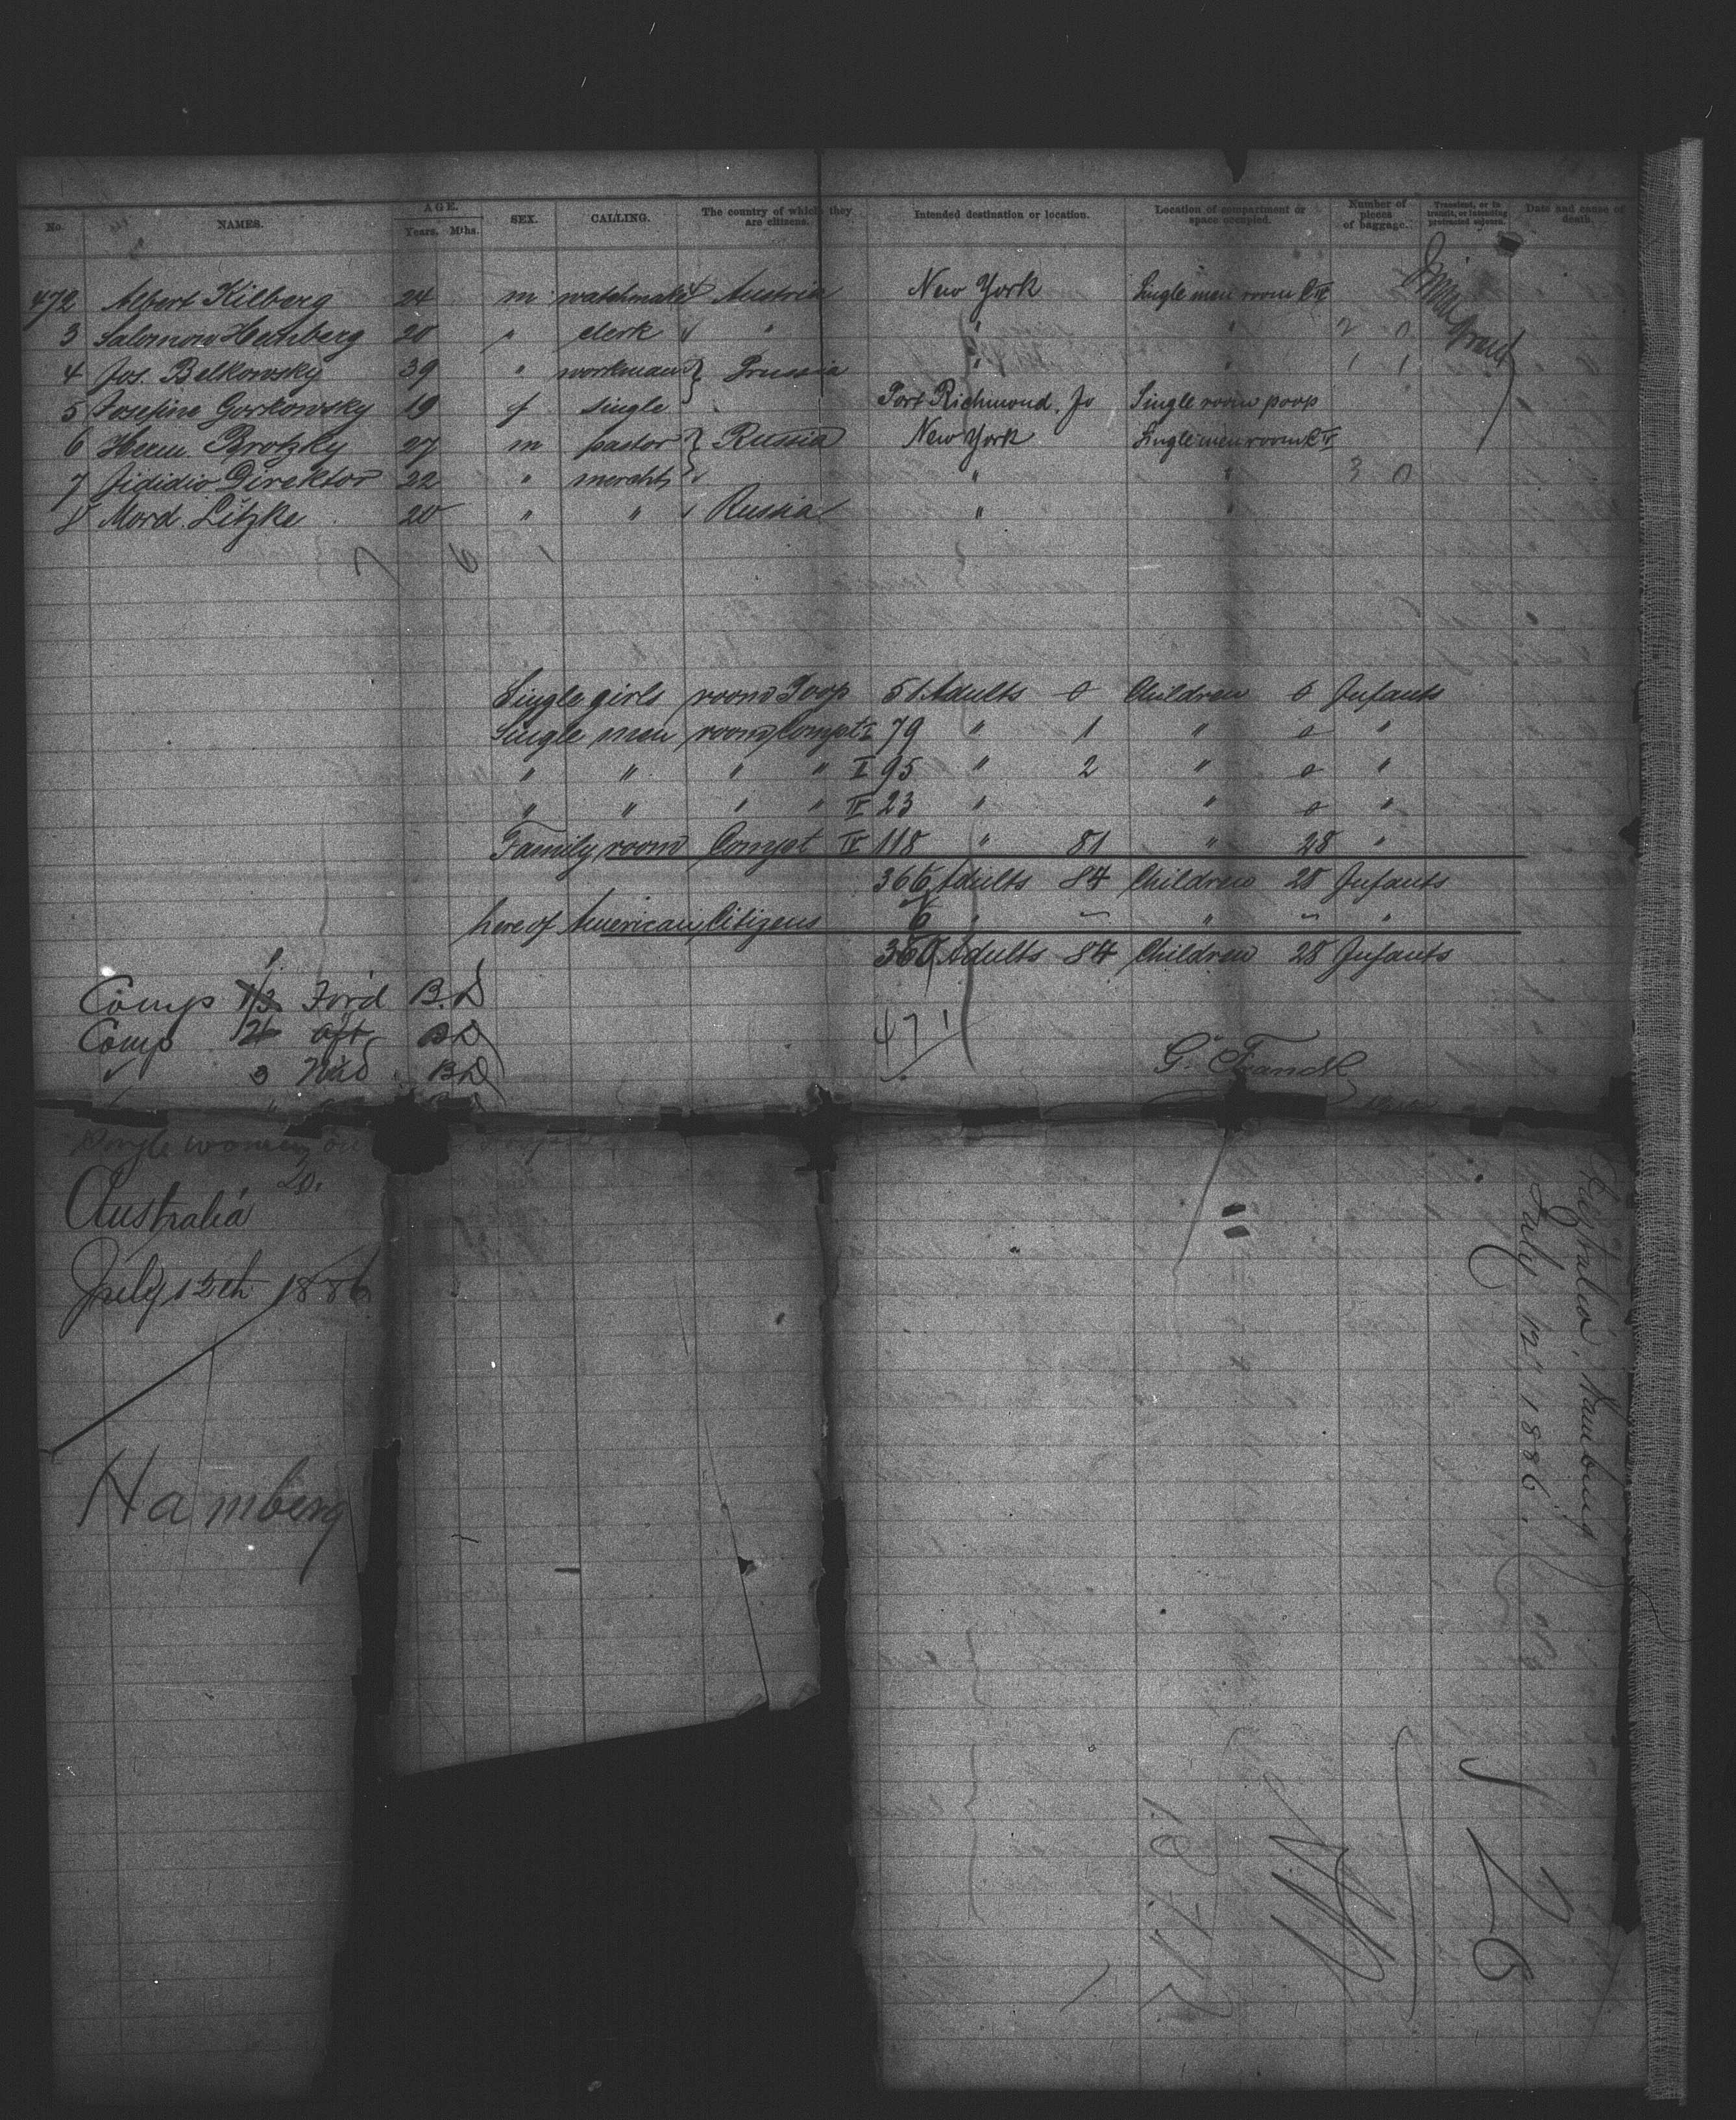 No. NAMES. AGE. Years. Mths. SEX. CALLING. The country of which they are citizens. Intended destination or location. Location of compartment or space occupied. Number of pieces of baggage. Transient, or in transit, or intending protracted sojourn. Date and cause of death.
472 Albert Kilberg 24 m watchmaker Austria New York Single men room C IV
3 Salomon Hamberg 20 " clerk " " " " 2 0
4 Jos. Belkowsky 39 " workman } Prussia " " 1 1
5 Josefine Gorkowsky 19 f single Port Richmond. Single room poop
6 Herm. Brotzky 27 m pastor } Russia New York Single men room C IV
7 Jididio Direktor 22 " merchts " " 3 0
8 Mord. Litzke 20 " " " Russia "
7 6 1
Single girls room Poop 51 Adults 0 Children 0 Infants
Single men room Compt I 79 " 1 " 0 "
" " " " II 95 " 2 " 0 "
" " " " IV 23 " " 0 "
Family room Compt IV 118 " 81 " 28 "
366 Adults 84 Children 28 Infants
here of American Citizens 6 " – " – "
360 Adults 84 Children 28 Infants
Comp Ford B.D
Comp aft BD
" 3 BD
471
G. Franck
Single women on
Australia
July 12th 1886
Hamberg
Australia, Hamburg
July 12, 1886.